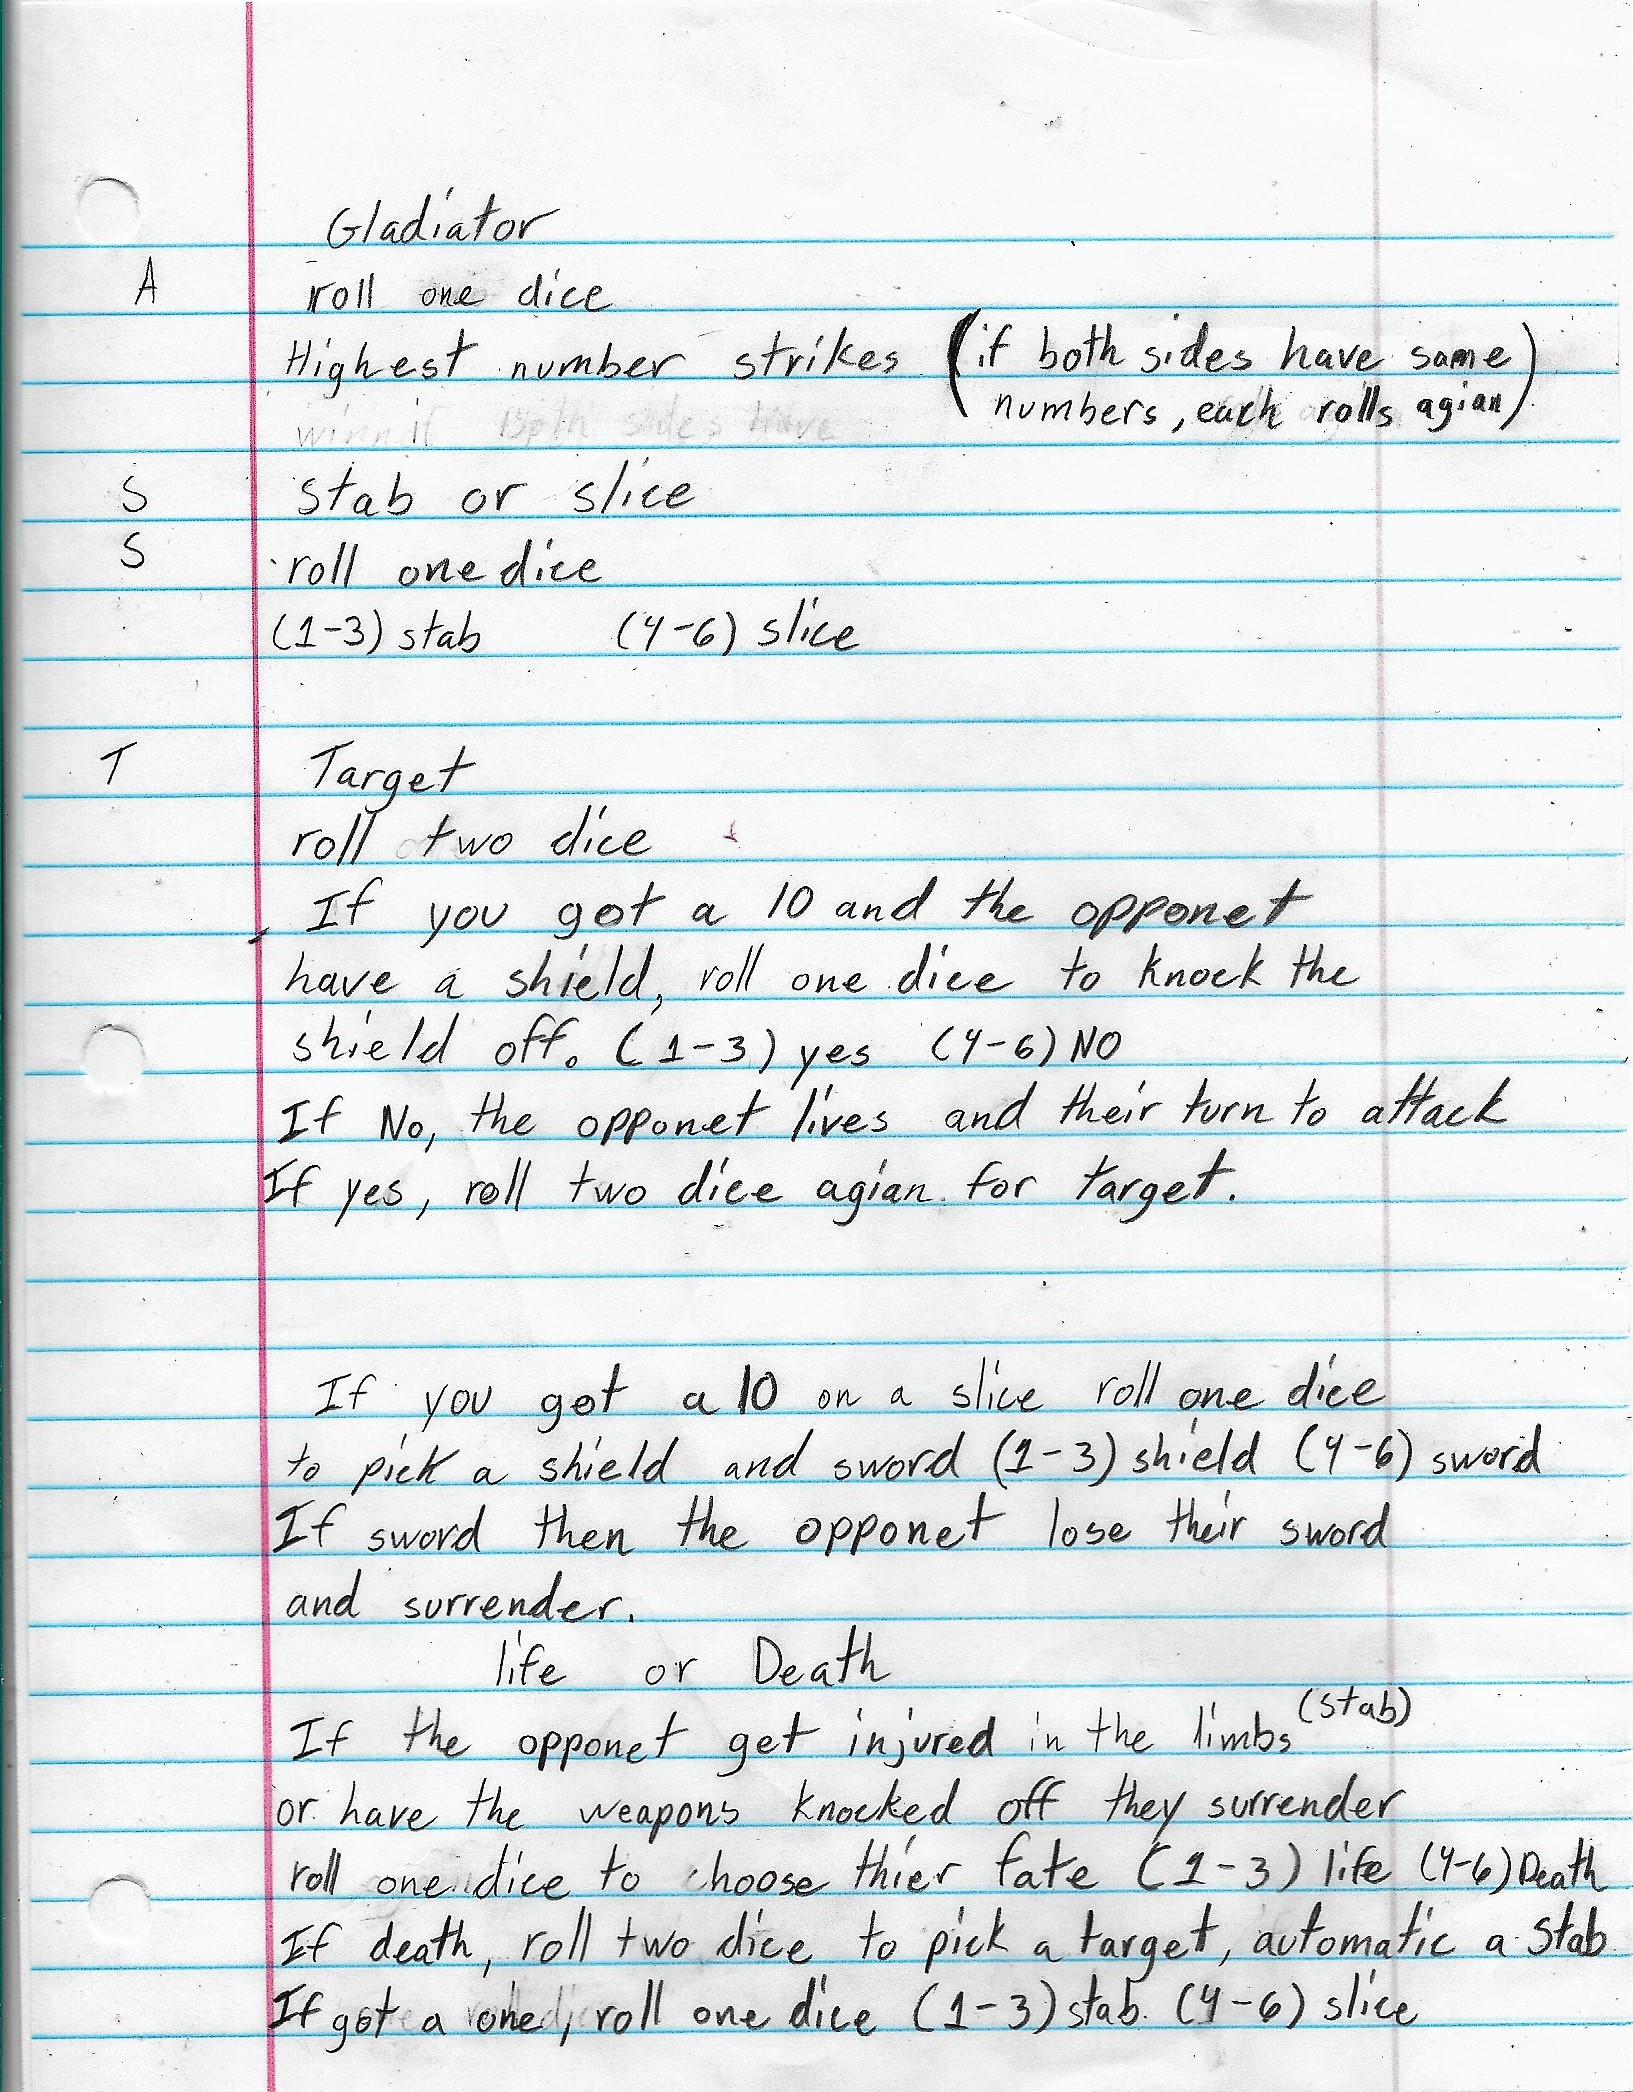 Gladiator
A roll one dice
Highest number strikes (if both sides have same
numbers, each rolls agian)
winn if Both sides Have
S stab or slice
S roll one dice
(1-3) stab (4-6) slice
T Target
roll two dice
If you got a 10 and the opponet
have a shield, roll one dice to knock the
shield off. (1-3) yes (4-6) NO
If No, the opponet lives and their turn to attack
If yes, roll two dice agian for target.
If you got a 10 on a slice roll one dice
to pick a shield and sword (1-3) shield (4-6) sword
If sword then the opponet lose their sword
and surrender.
life or Death
If the opponet get injured in the limbs (stab)
or have the weapons knocked off they surrender
roll one dice to choose thier fate (1-3) life (4-6) Death
If death, roll two dice to pick a target, automatic a stab
If got a one, roll one dice (1-3) stab. (4-6) slice